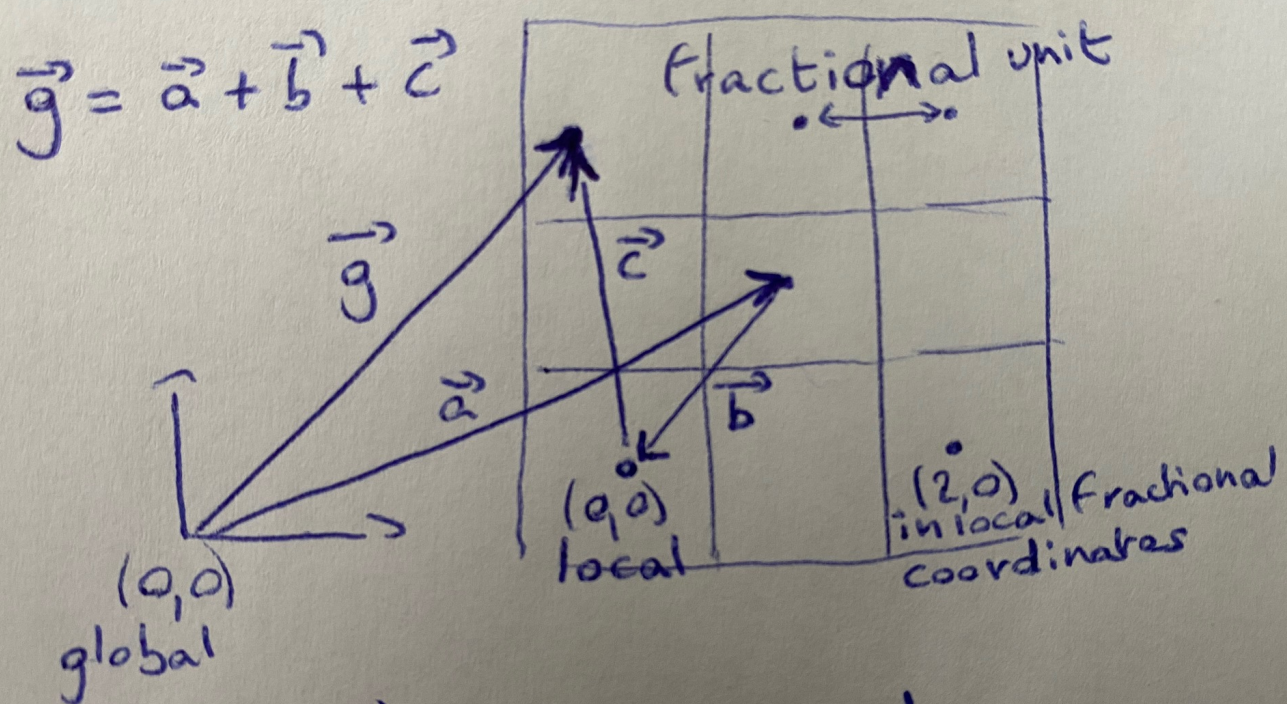 g⃗ = a⃗ + b⃗ + c⃗
fractional unit
g⃗
c⃗
a⃗
b⃗
(0,0)
local
(2,0)
in local/fractional
coordinates
(0,0)
global